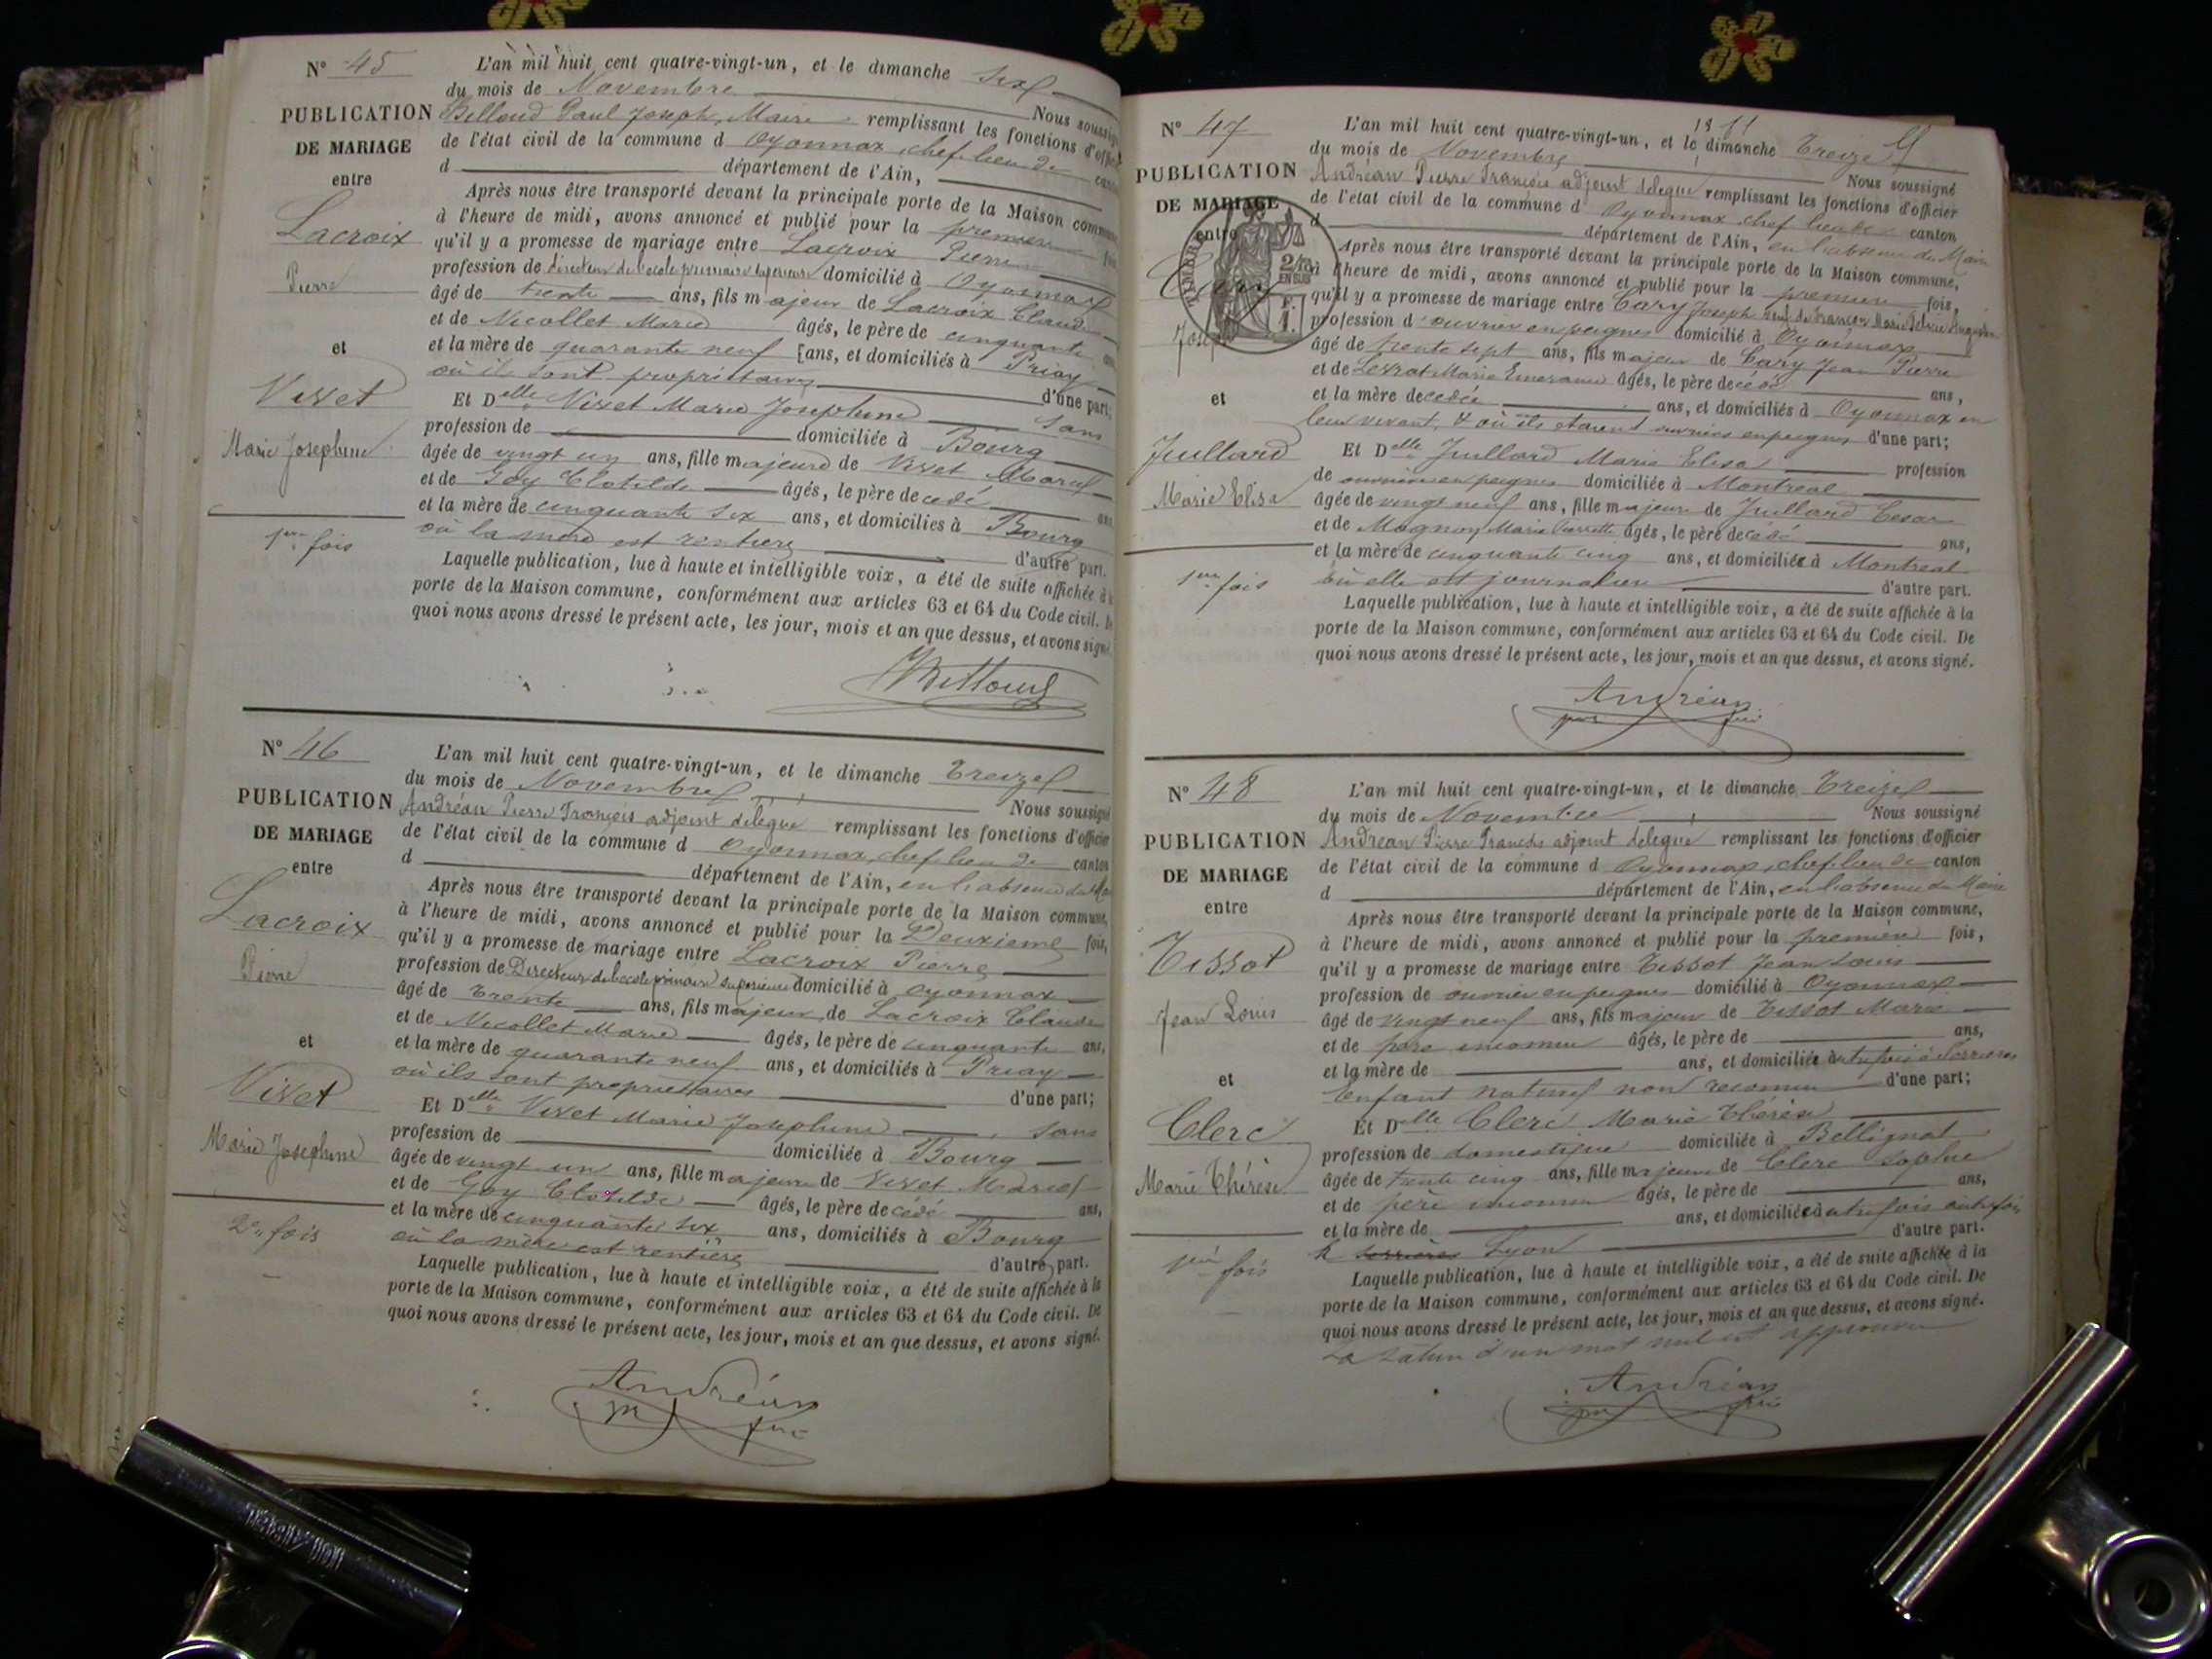 N° 45
PUBLICATION
DE MARIAGE
entre
Lacroix
Pierre
et
Vivet
Marie Josephine
1ere fois
L'an mil huit cent quatre-vingt-un, et le dimanche six
du mois de Novembre Nous soussigné
Billoud Paul Joseph, Maire remplissant les fonctions d'officier
de l'état civil de la commune d Oyonnax, chef lieu de canton
d département de l'Ain,
Après nous être transporté devant la principale porte de la Maison commune
à l'heure de midi, avons annoncé et publié pour la premiere fois
qu'il y a promesse de mariage entre Lacroix Pierre
profession de directeur de l'ecole primaire superieure domicilié à Oyonnax
âgé de trente ans, fils majeur de Lacroix Claude
et de Nicollet Marie âgés, le père de cinquante ans
et la mère de quarante neuf [ans, et domiciliés à Priay
où ils sont propriétaires d'une part;
Et Delle Vivet Marie Josephine Sans
profession de domiciliée à Bourg
âgée de vingt un ans, fille majeure de Vivet Marcel
et de Goy Clotilde âgés, le père decedé ans
et la mère de cinquante six ans, et domicilies à Bourg
où la mère est rentiere d'autre part.
Laquelle publication, lue à haute et intelligible voix, a été de suite affichée à la
porte de la Maison commune, conformément aux articles 63 et 64 du Code civil. De
quoi nous avons dressé le présent acte, les jour, mois et an que dessus, et avons signé.
Billoud
N° 46
PUBLICATION
DE MARIAGE
entre
Lacroix
Pierre
et
Vivet
Marie Josephine
2e fois
L'an mil huit cent quatre-vingt-un, et le dimanche Treize
du mois de Novembre Nous soussigné
Andréan Pierre François adjoint délégué remplissant les fonctions d'officier
de l'état civil de la commune d Oyonnax, chef lieu de canton
d département de l'Ain, en l'absence du Maire
Après nous être transporté devant la principale porte de la Maison commune,
à l'heure de midi, avons annoncé et publié pour la Deuxieme fois,
qu'il y a promesse de mariage entre Lacroix Pierre
profession de Directeur de l'ecole primaire superieure domicilié à Oyonnax
âgé de Trente ans, fils majeur de Lacroix Claude
et de Nicollet Marie âgés, le père de cinquante ans,
et la mère de quarante neuf ans, et domiciliés à Priay
où ils sont propriétaires d'une part;
Et Delle Vivet Marie Josephine, sans
profession de domiciliée à Bourg
âgée de vingt un ans, fille majeure de Vivet Marcel
et de Goy Clotilde âgés, le père decédé ans,
et la mère de cinquante six ans, domiciliés à Bourg
où la mère est rentière d'autre part.
Laquelle publication, lue à haute et intelligible voix, a été de suite affichée à la
porte de la Maison commune, conformément aux articles 63 et 64 du Code civil. De
quoi nous avons dressé le présent acte, les jour, mois et an que dessus, et avons signé.
Andréan
N° 47
PUBLICATION
DE MARIAGE
entre
Cary
Joseph
et
Juillard
Marie Elisa
1ere fois
TIMBRE
2/10 EN SUS
1 F.
L'an mil huit cent quatre-vingt-un, et le dimanche Treize
du mois de Novembre Nous soussigné
Andréan Pierre François adjoint délégué remplissant les fonctions d'officier
de l'état civil de la commune d Oyonnax chef lieu de canton
d département de l'Ain, en l'absence du Maire
Après nous être transporté devant la principale porte de la Maison commune,
à l'heure de midi, avons annoncé et publié pour la premiere fois,
qu'il y a promesse de mariage entre Cary Joseph veuf de Marie
profession d'ouvrier en peignes domicilié à Oyonnax
âgé de trente sept ans, fils majeur de Cary Jean Pierre
et de Marie âgés, le père decédé ans,
et la mère decedée ans, et domiciliés à Oyonnax en
leur vivant, & où ils etaient ouvriers en peignes d'une part;
Et Delle Juillard Marie Elisa profession
de ouvriere en peignes domiciliée à Montreal
âgée de vingt neuf ans, fille majeure de Juillard Cesar
et de Magnon Marie Pierrette âgés, le père decédé ans,
et la mère de cinquante cinq ans, et domiciliés à Montreal
où elle est journaliere d'autre part.
Laquelle publication, lue à haute et intelligible voix, a été de suite affichée à la
porte de la Maison commune, conformément aux articles 63 et 64 du Code civil. De
quoi nous avons dressé le présent acte, les jour, mois et an que dessus, et avons signé.
Andréan
N° 48
PUBLICATION
DE MARIAGE
entre
Tissot
Jean Louis
et
Clerc
Marie Thérèse
1ere fois
L'an mil huit cent quatre-vingt-un, et le dimanche Treize
du mois de Novembre Nous soussigné
Andréan Pierre François adjoint delegué remplissant les fonctions d'officier
de l'état civil de la commune d Oyonnax, chef lieu de canton
d département de l'Ain, en l'absence du Maire
Après nous être transporté devant la principale porte de la Maison commune,
à l'heure de midi, avons annoncé et publié pour la premiere fois,
qu'il y a promesse de mariage entre Tissot Jean Louis
profession de ouvrier en peignes domicilié à Oyonnax
âgé de vingt neuf ans, fils majeur de Tissot Marie
et de père inconnu âgés, le père de ans,
et la mère de ans, et domiciliés autrefois à Serrieres
Enfant naturel non reconnu d'une part;
Et Delle Clerc Marie Thérèse
profession de domestique domiciliée à Bellignat
âgée de trente cinq ans, fille majeure de Clerc Sophie
et de père inconnu âgés, le père de ans,
et la mère de ans, et domiciliés autrefois autrefois
à Serrières Lyon d'autre part.
Laquelle publication, lue à haute et intelligible voix, a été de suite affichée à la
porte de la Maison commune, conformément aux articles 63 et 64 du Code civil. De
quoi nous avons dressé le présent acte, les jour, mois et an que dessus, et avons signé.
La rature d'un mot nul est approuvée
Andréan